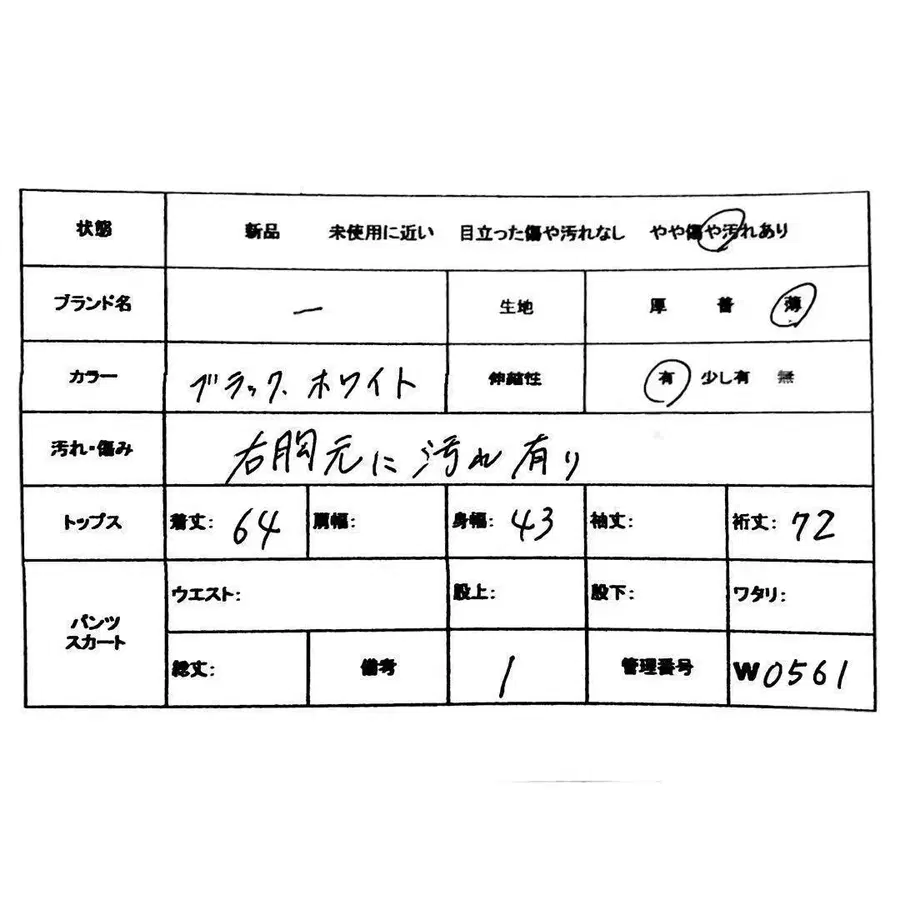 状態 新品 未使用に近い 目立った傷や汚れなし やや傷や汚れあり
ブランド名 ー 生地 厚 普 薄
カラー ブラック、ホワイト 伸縮性 有 少し有 無
汚れ・傷み 右胸元に汚れ有り
トップス 着丈: 64 肩幅: 身幅: 43 袖丈: 裄丈: 72
パンツ
スカート
ウエスト: 股上: 股下: ワタリ:
総丈: 備考 1 管理番号 W0561